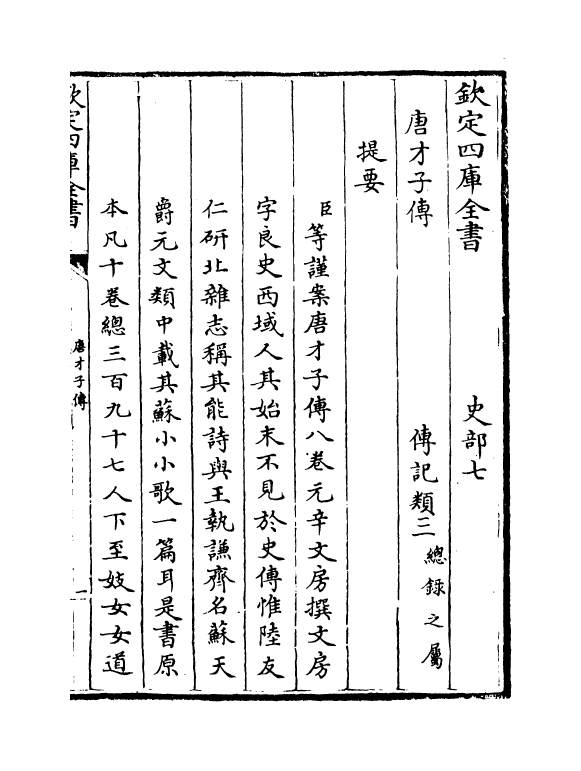 欽定四庫全書　史部七
唐才子傳　傳記類三總錄之屬
提要
臣等謹案唐才子傳八卷元辛文房撰文房
字良史西域人其始末不見於史傳惟陸友
仁硏北雜志稱其能詩與王執謙齊名蘇天
爵元文類中載其蘇小小歌一篇耳是書原
本凡十卷總三百九十七人下至妓女女道
欽定四庫全書
唐才子傳
一